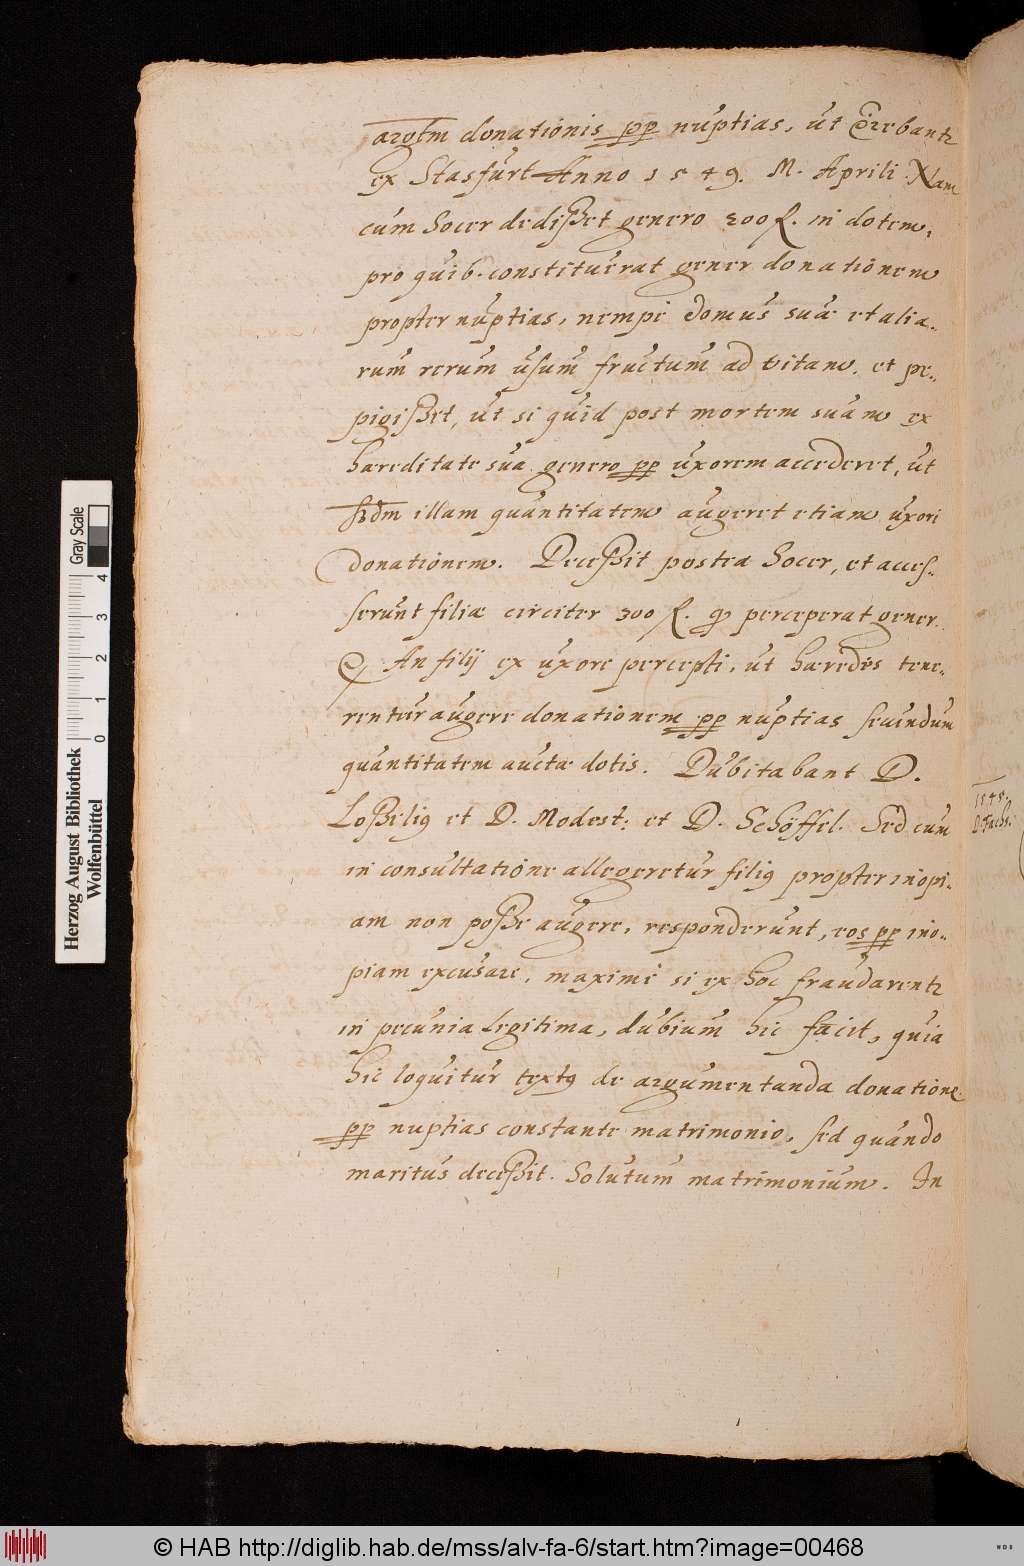 argtm donationis pp nuptias, ut
ex Stasfurt Anno 1549. M. Aprili. Nam
cum Socer dedisset genero 200 f. in dotem,
pro quib. constituerat gener donationem
propter nuptias, nempe domus suæ et alia-
rum rerum usum fructum ad vitam, et pe-
pigisset, ut si quid post mortem suam ex
hæreditate sua genero pp uxorem accederet, ut
scdm illam quantitatem augeret etiam uxori
donationem. Decessit postea Socer, et acces-
serunt filiæ circiter 300 f. perceperat gener.
An filij ex uxore percepti, ut hæredes tene-
rentur augere donationem pp nuptias secundum
quantitatem auctæ dotis. Dubitabant D.
Losselig et D. Modest: et D. Schöffel. Sed cum
in consultatione allegeretur filig propter inopi-
am non posse augere, responderunt, eos pp ino-
piam excusare, maxime si ex hoc fraudarentr
in pecunia legitima, dubium hic facit, quia
hic loquitur textg de argumentanda donatione
pp nuptias constante matrimonio, sed quando
maritus decessit. Solutum matrimonium. In
1545.
D. Fachs.
Herzog August Bibliothek
Wolfenbüttel
0 1 2 3 4
Gray Scale
© HAB http://diglib.hab.de/mss/alv-fa-6/start.htm?image=00468